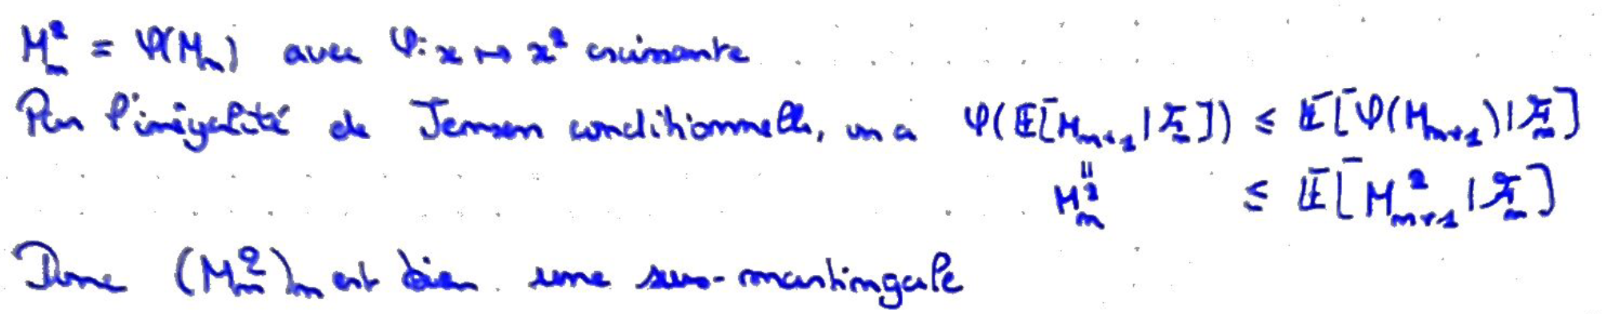 M_n^2 = φ(M_n) avec φ: x ↦ x^2 croissante
Par l'inégalité de Jensen conditionnelle, on a φ(𝔼[M_{n+1} | ℱ_n]) ≤ 𝔼[φ(M_{n+1}) | ℱ_n]
= M_n^2 ≤ 𝔼[M_{n+1}^2 | ℱ_n]
Donc (M_n^2)_n est bien une sus-martingale